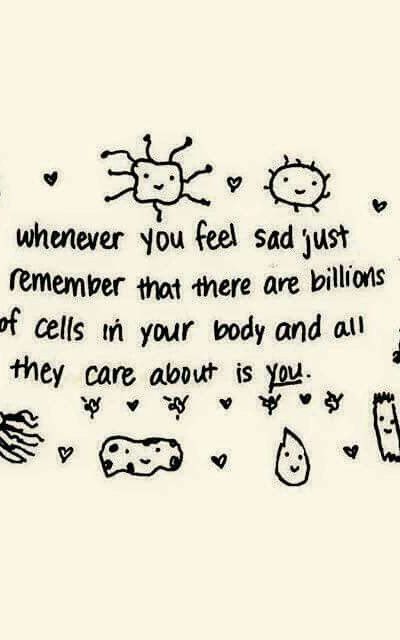 whenever you feel sad just
remember that there are billions
of cells in your body and all
they care about is you.